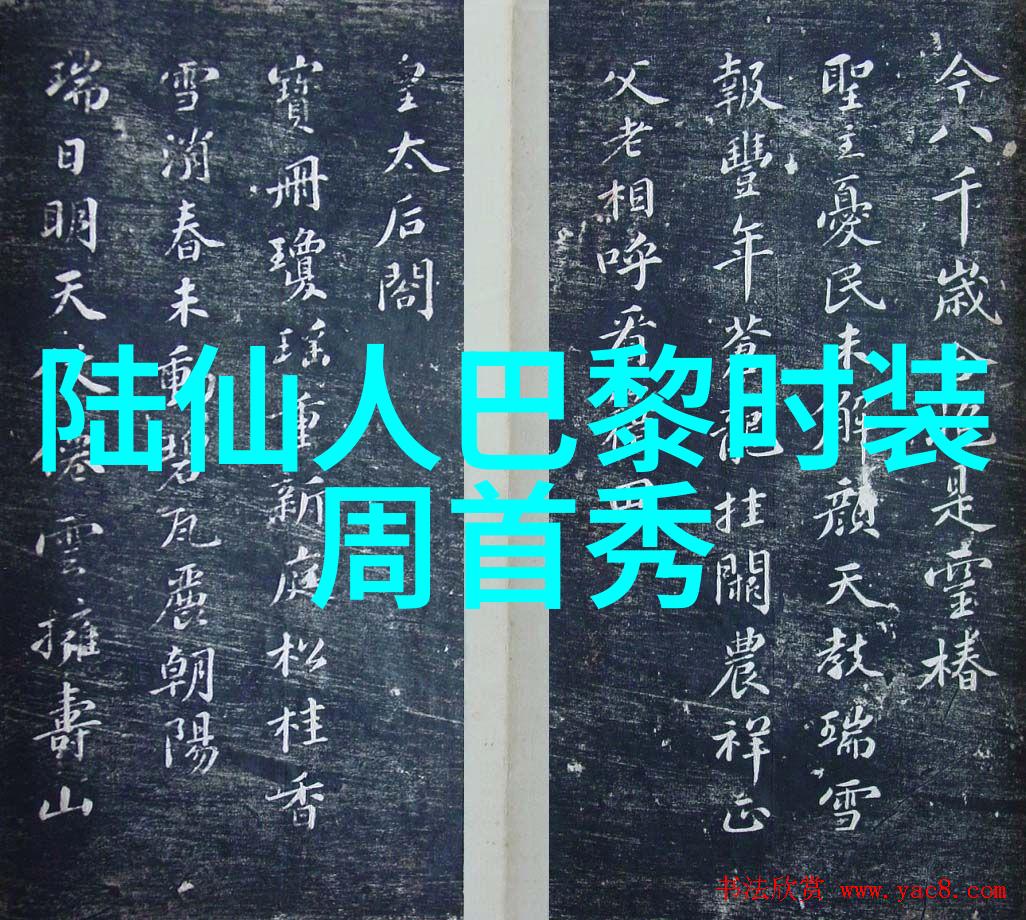 今八千歲是靈椿
聖主憂民未解顏天教瑞雪
報豐年蒼龍挂闕農祥正
父老相呼看田
皇太后閣
寶冊瓊瑤重新庭松桂香
雪消春未動碧瓦麗朝陽
瑞日明天仗僊雲擁壽山
陆仙人巴黎时装
周首秀
书法欣赏 www.yac8.com